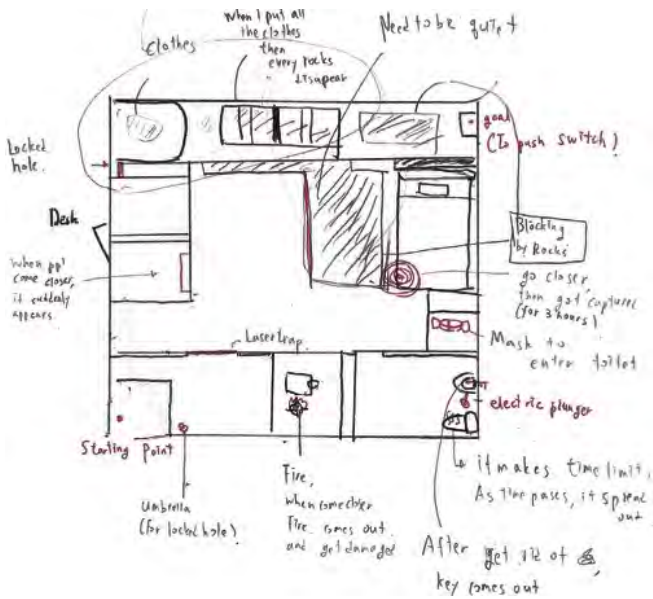 Clothes
When I put all
the clothes
then
every rocks
disapear
Need to be quiet
goal
(To push switch)
Locked
hole.
Desk
When ppl
come closer,
it suddenly
appears.
Blocking
by Rocks
go closer,
then got captured
(for 3 hours)
Mask to
enter toilet
Laser trap.
electric plunger
Starting Point
Umbrella
(for locked hole)
Fire,
when come closer
Fire comes out
and get damaged
it makes time limit,
As time pases, it spread
out
After get rid of
key comes out